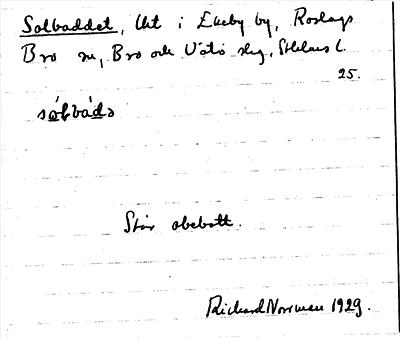 Solbaddet, lht i Ekeby by, Roslags
Bro sn, Bro och Vätö skg, Sthlms l.
25.
sólbád
Står obebott.
Richard Norrman 1929.